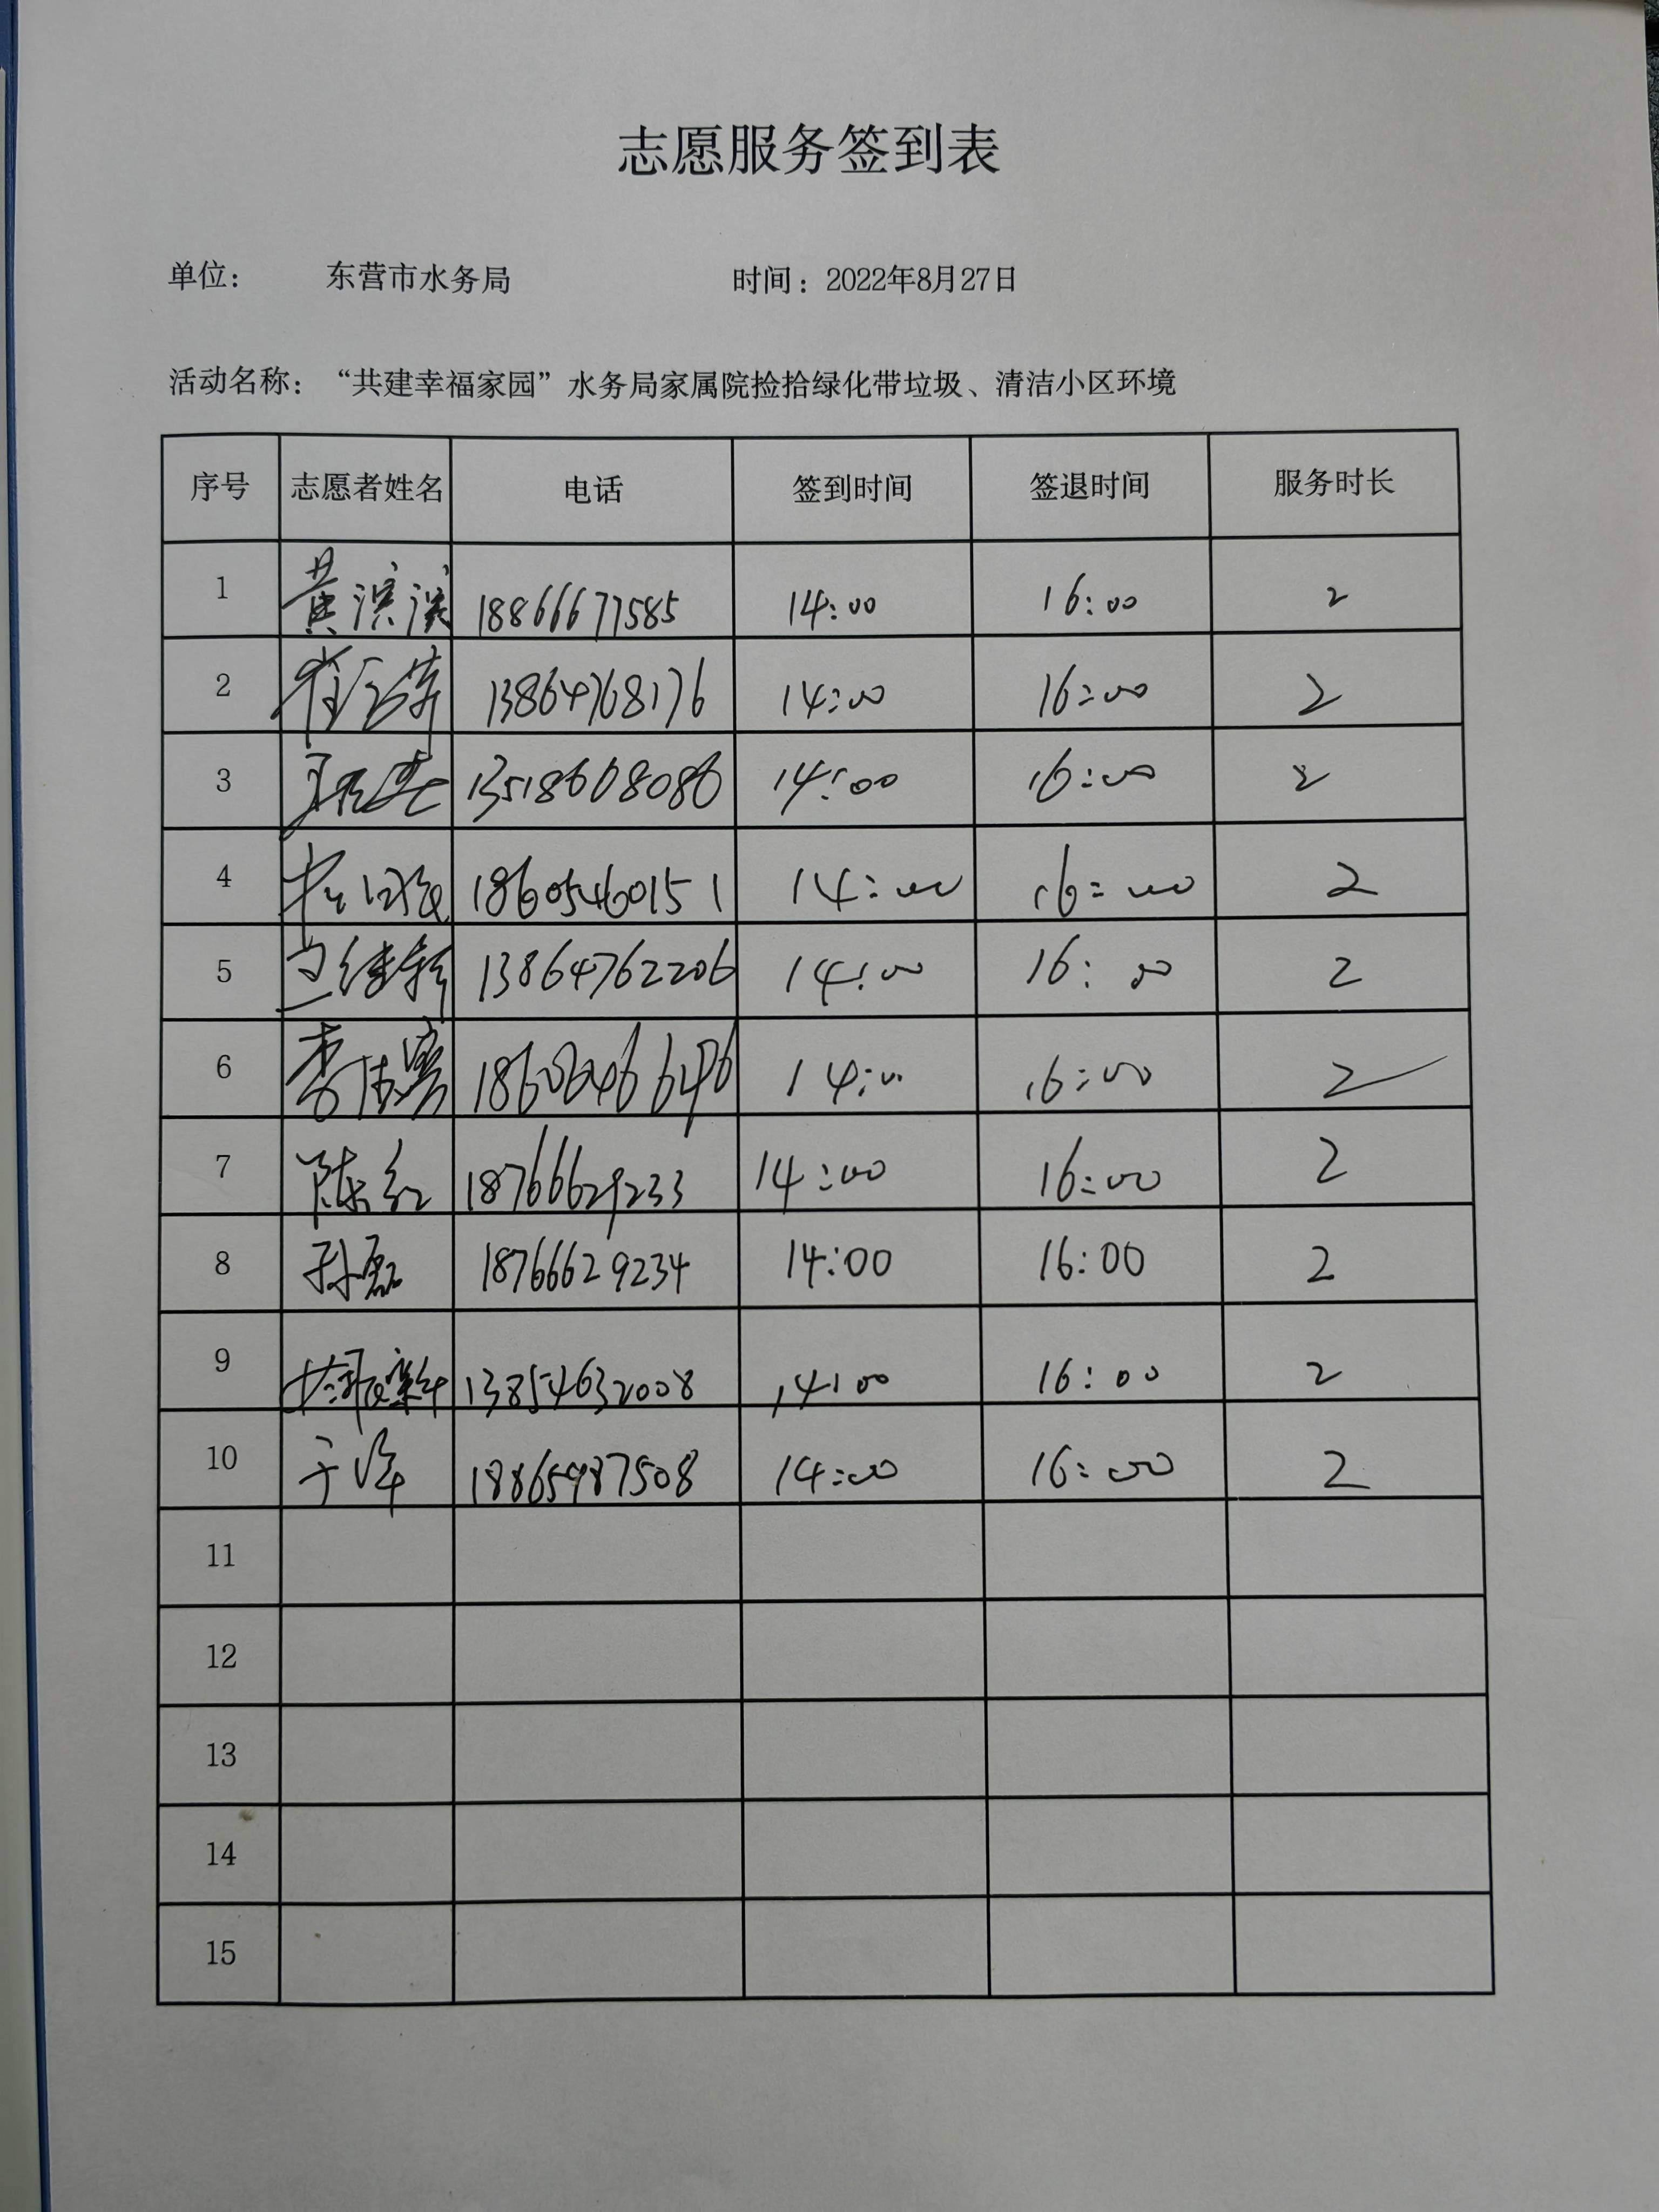 志愿服务签到表
单位: 东营市水务局 时间: 2022年8月27日
活动名称: “共建幸福家园”水务局家属院捡拾绿化带垃圾、清洁小区环境
序号 志愿者姓名 电话 签到时间 签退时间 服务时长
1 黄滨滨 18866677585 14:00 16:00 2
2 13864768176 14:00 16:00 2
3 13518668086 14:00 16:00 2
4 18605460151 14:00 16:00 2
5 13864762206 14:00 16:00 2
6 14:00 16:00 2
7 陈红 18766629233 14:00 16:00 2
8 孙磊 18766629234 14:00 16:00 2
9 13854632008 14:00 16:00 2
10 18865987508 14:00 16:00 2
11
12
13
14
15